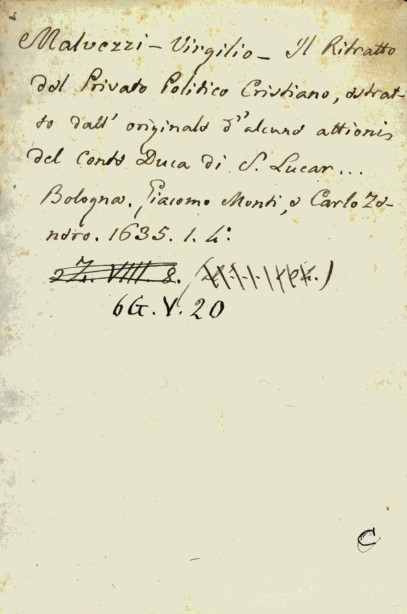 Malvezzi - Virgilio - Il Ritratto
del Privato Politico Cristiano, estrat-
to dall' originale d'alcune attionis
del Conte Duca di S. Lucar...
Bologna. Giacomo Monti, e Carlo Ze-
nero. 1635. 1. 4:
2Z. VIII. 8.
6G. V. 20
C